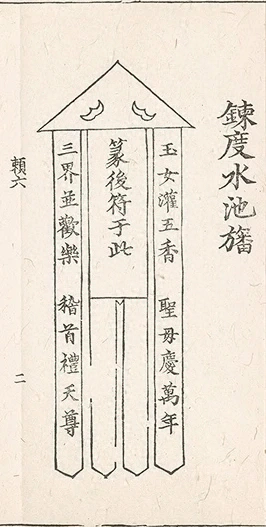 鍊度水池旛
玉女灌五香 聖母慶萬年
篆後符于此
三界並歡樂 稽首禮天尊
頼六
二